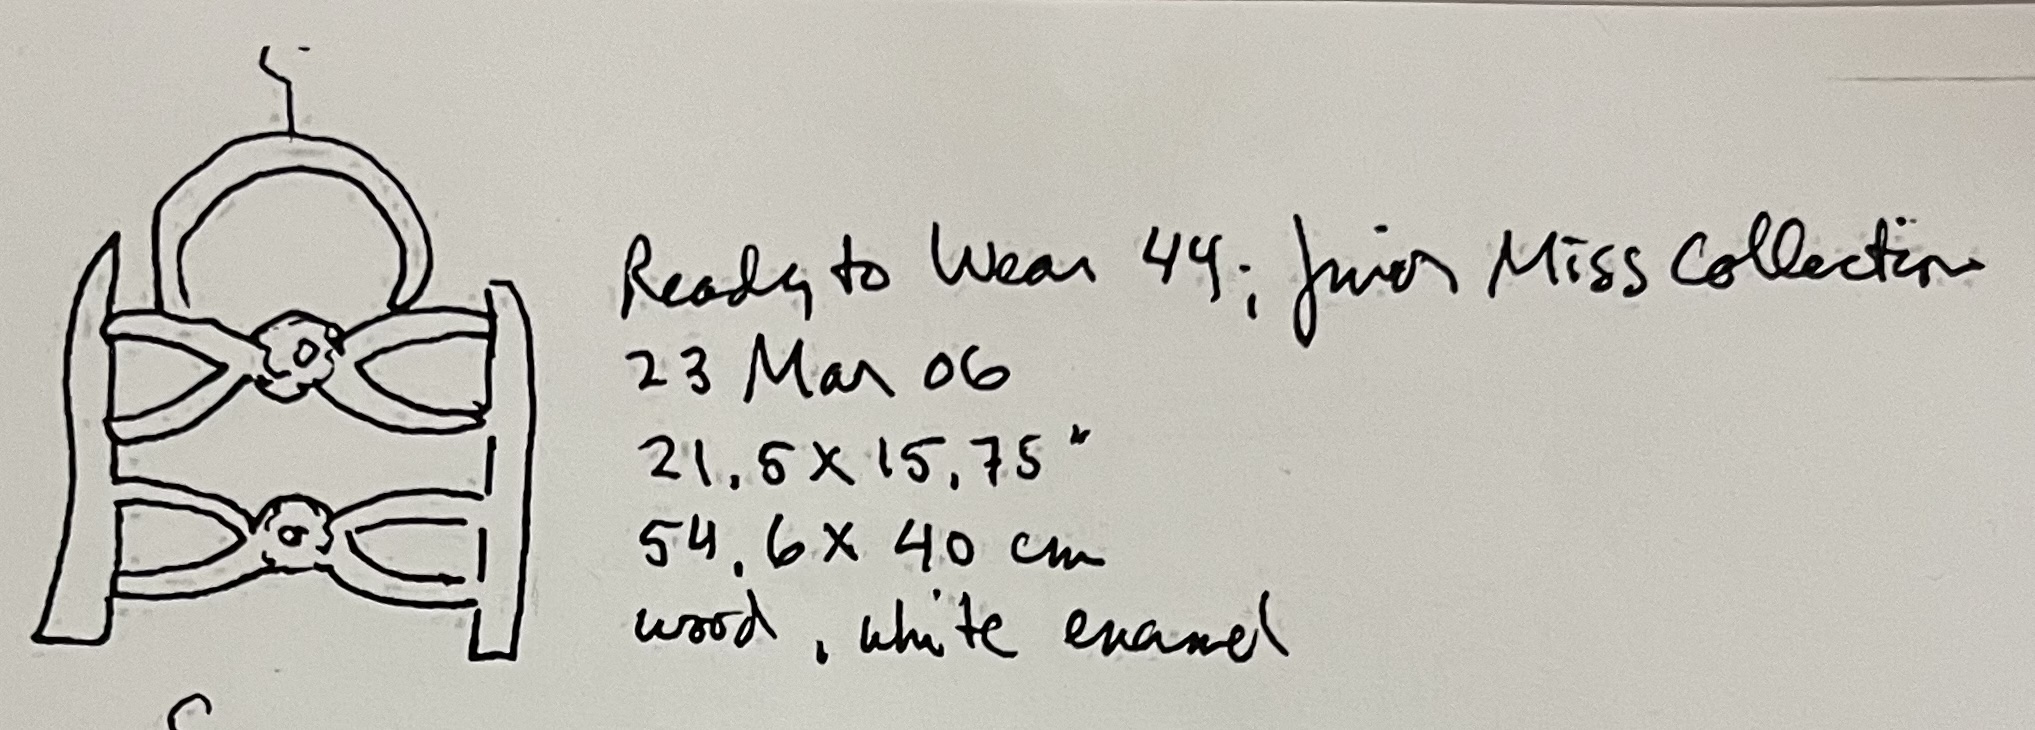 Ready to Wear 44; Junior Miss Collection
23 Mar 06
21.5 x 15.75"
54.6 x 40 cm
wood, white enamel